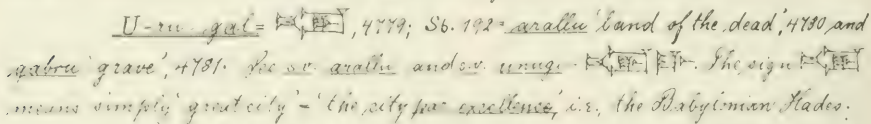 U-ru-gal = 4779; Sb. 192 = arallu 'land of the dead', 4780 and
qabru 'grave', 4781. See s.v. arallu and s.v. unug. The sign
means simply 'great city' - 'the city par excellence,' i.e., the Babylonian Hades.